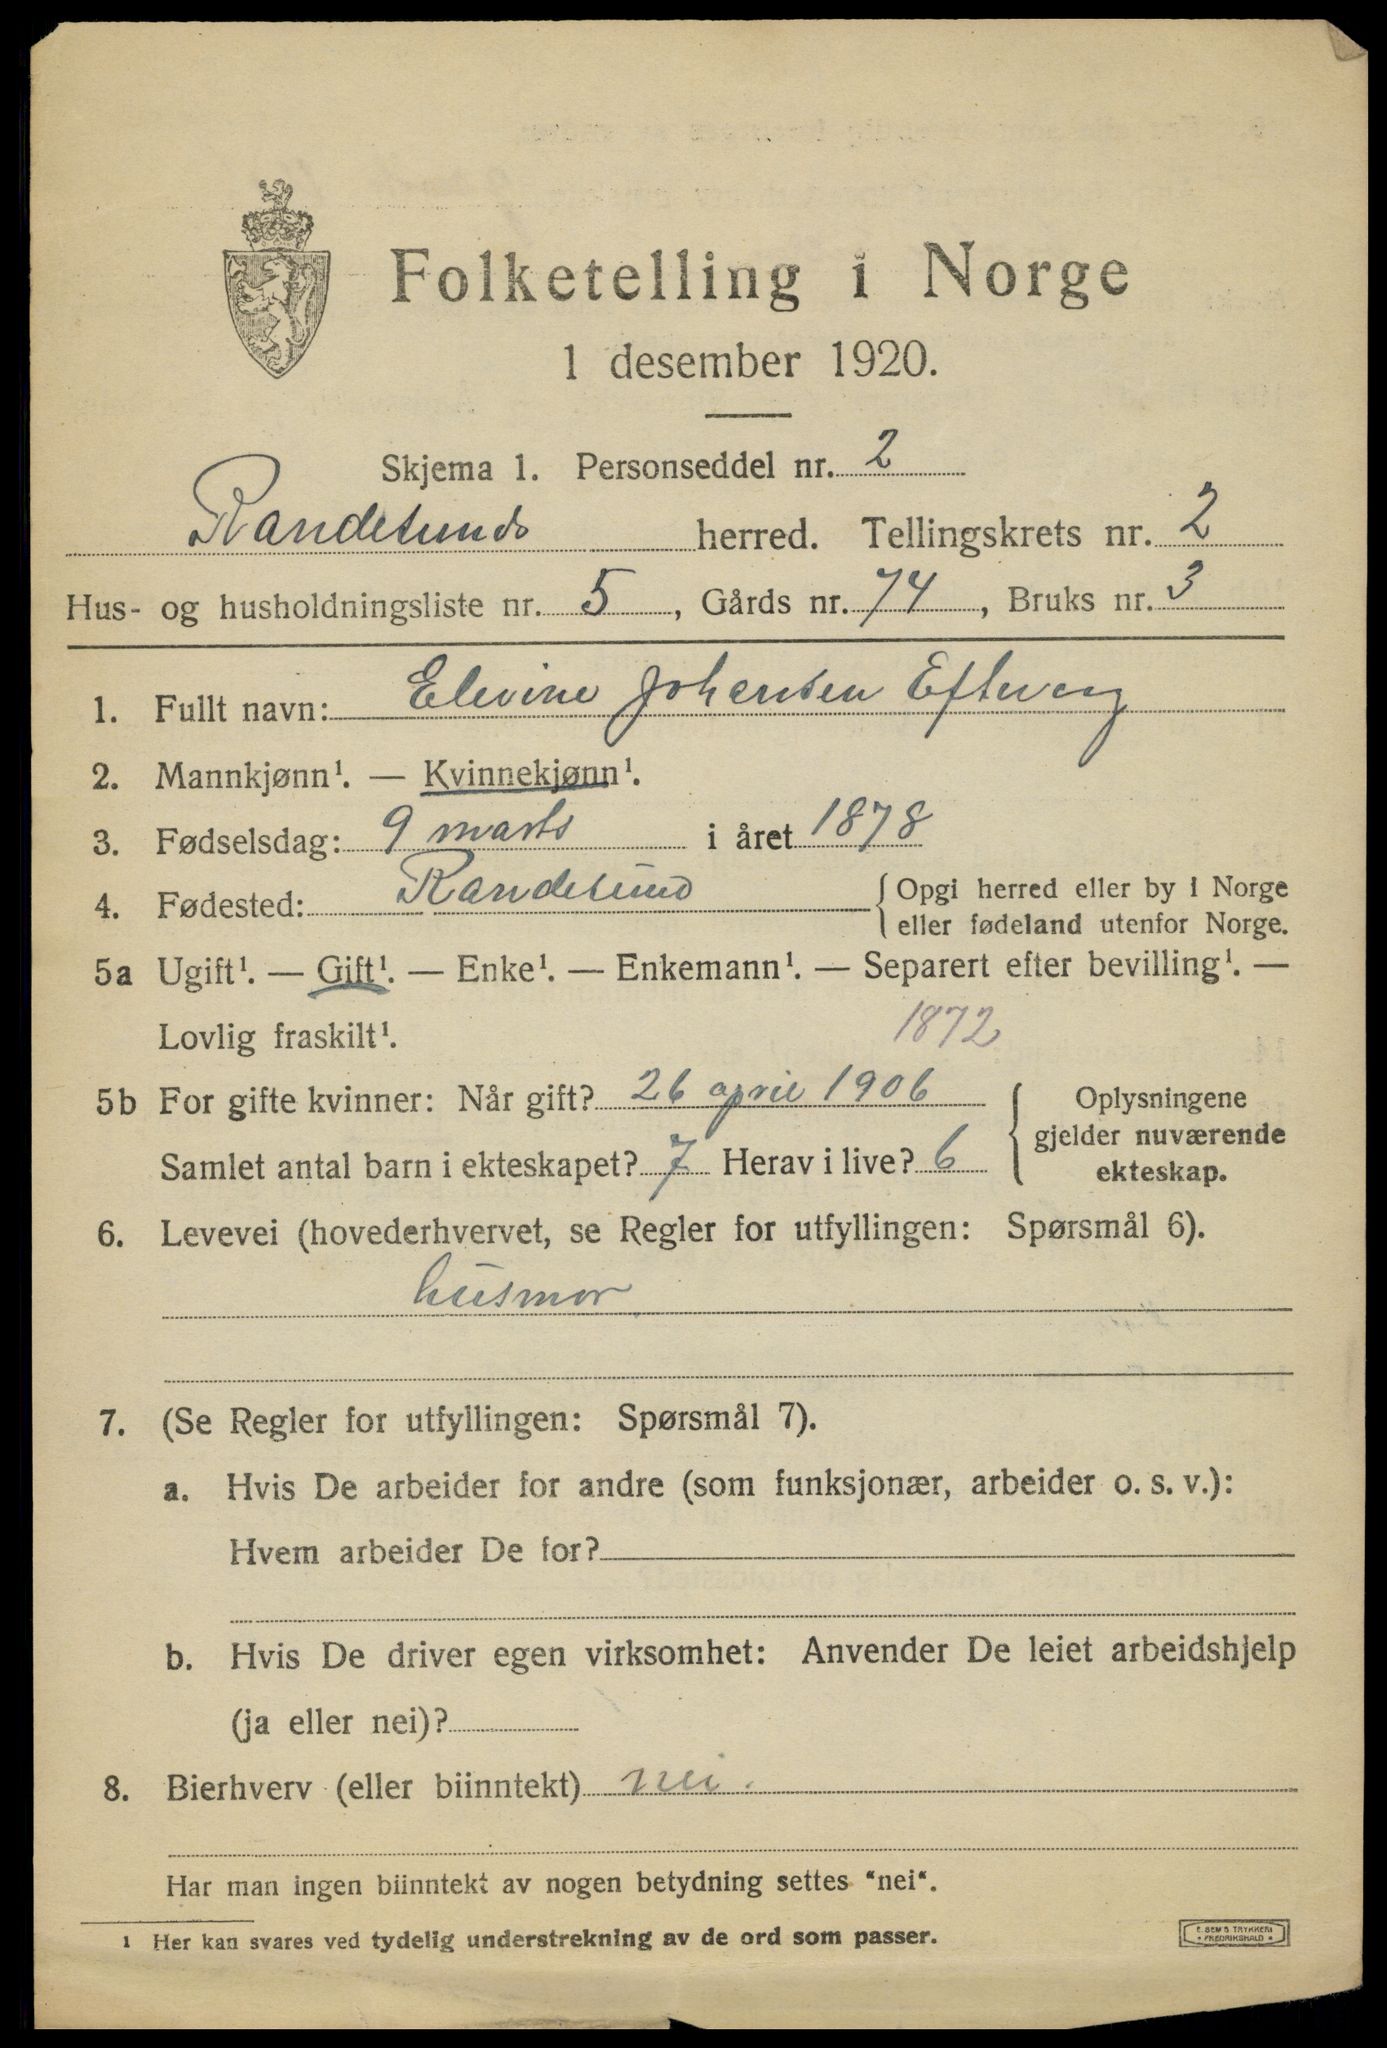 Folketelling i Norge
1 desember 1920.
Skjema 1. Personseddel nr. 2
Randesunds herred. Tellingskrets nr. 2
Hus- og husholdningsliste nr. 5, Gårds nr. 74, Bruks nr. 3
1. Fullt navn: Elevine Johansen Eftevaag
2. Mannkjønn¹. — Kvinnekjønn¹.
3. Fødselsdag: 9 marts i året 1878
4. Fødested: Randesund { Opgi herred eller by i Norge
eller fødeland utenfor Norge.
5a Ugift¹. — Gift¹. — Enke¹. — Enkemann¹. — Separert efter bevilling¹. —
Lovlig fraskilt¹. 1872
5b For gifte kvinner: Når gift? 26 april 1906 { Oplysningene
gjelder nuværende
ekteskap.
Samlet antal barn i ekteskapet? 7 Herav i live? 6
6. Levevei (hovederhvervet, se Regler for utfyllingen: Spørsmål 6).
husmor
7. (Se Regler for utfyllingen: Spørsmål 7).
a. Hvis De arbeider for andre (som funksjonær, arbeider o. s. v.):
Hvem arbeider De for?
b. Hvis De driver egen virksomhet: Anvender De leiet arbeidshjelp
(ja eller nei)?
8. Bierhverv (eller biinntekt) nei.
Har man ingen biinntekt av nogen betydning settes “nei“.
1 Her kan svares ved tydelig understrekning av de ord som passer.
E. SEM'S TRYKKERI
• FREDRIKSHALD •